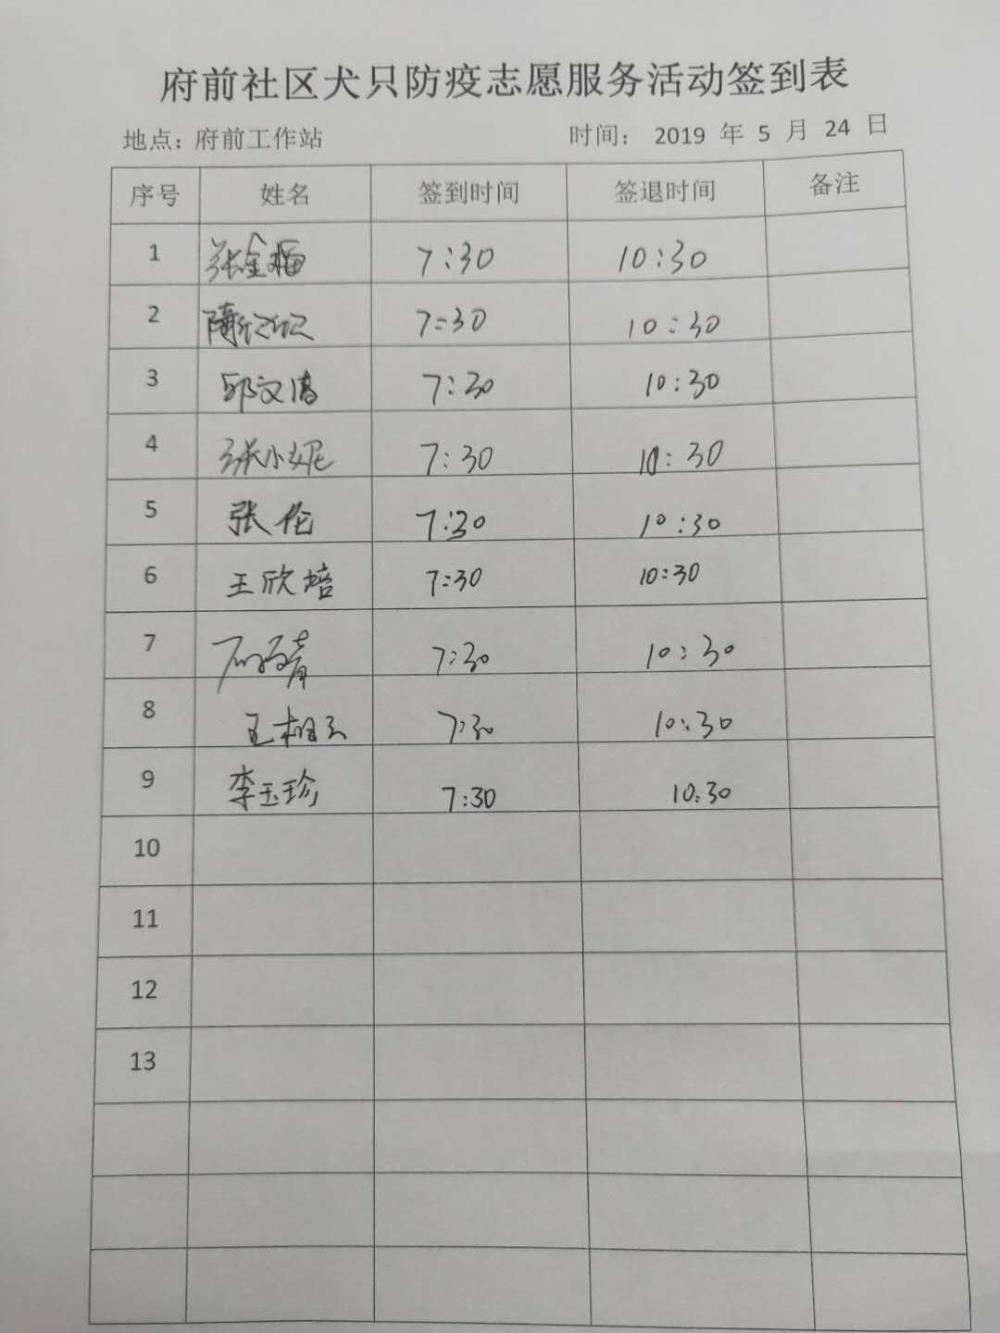 府前社区犬只防疫志愿服务活动签到表
地点：府前工作站 时间： 2019 年 5 月 24 日
序号 姓名 签到时间 签退时间 备注
1 张金梅 7:30 10:30
2 7:30 10:30
3 邱文清 7:30 10:30
4 张小妮 7:30 10:30
5 张伦 7:30 10:30
6 王欣培 7:30 10:30
7 7:30 10:30
8 王相玉 7:30 10:30
9 李玉珍 7:30 10:30
10
11
12
13